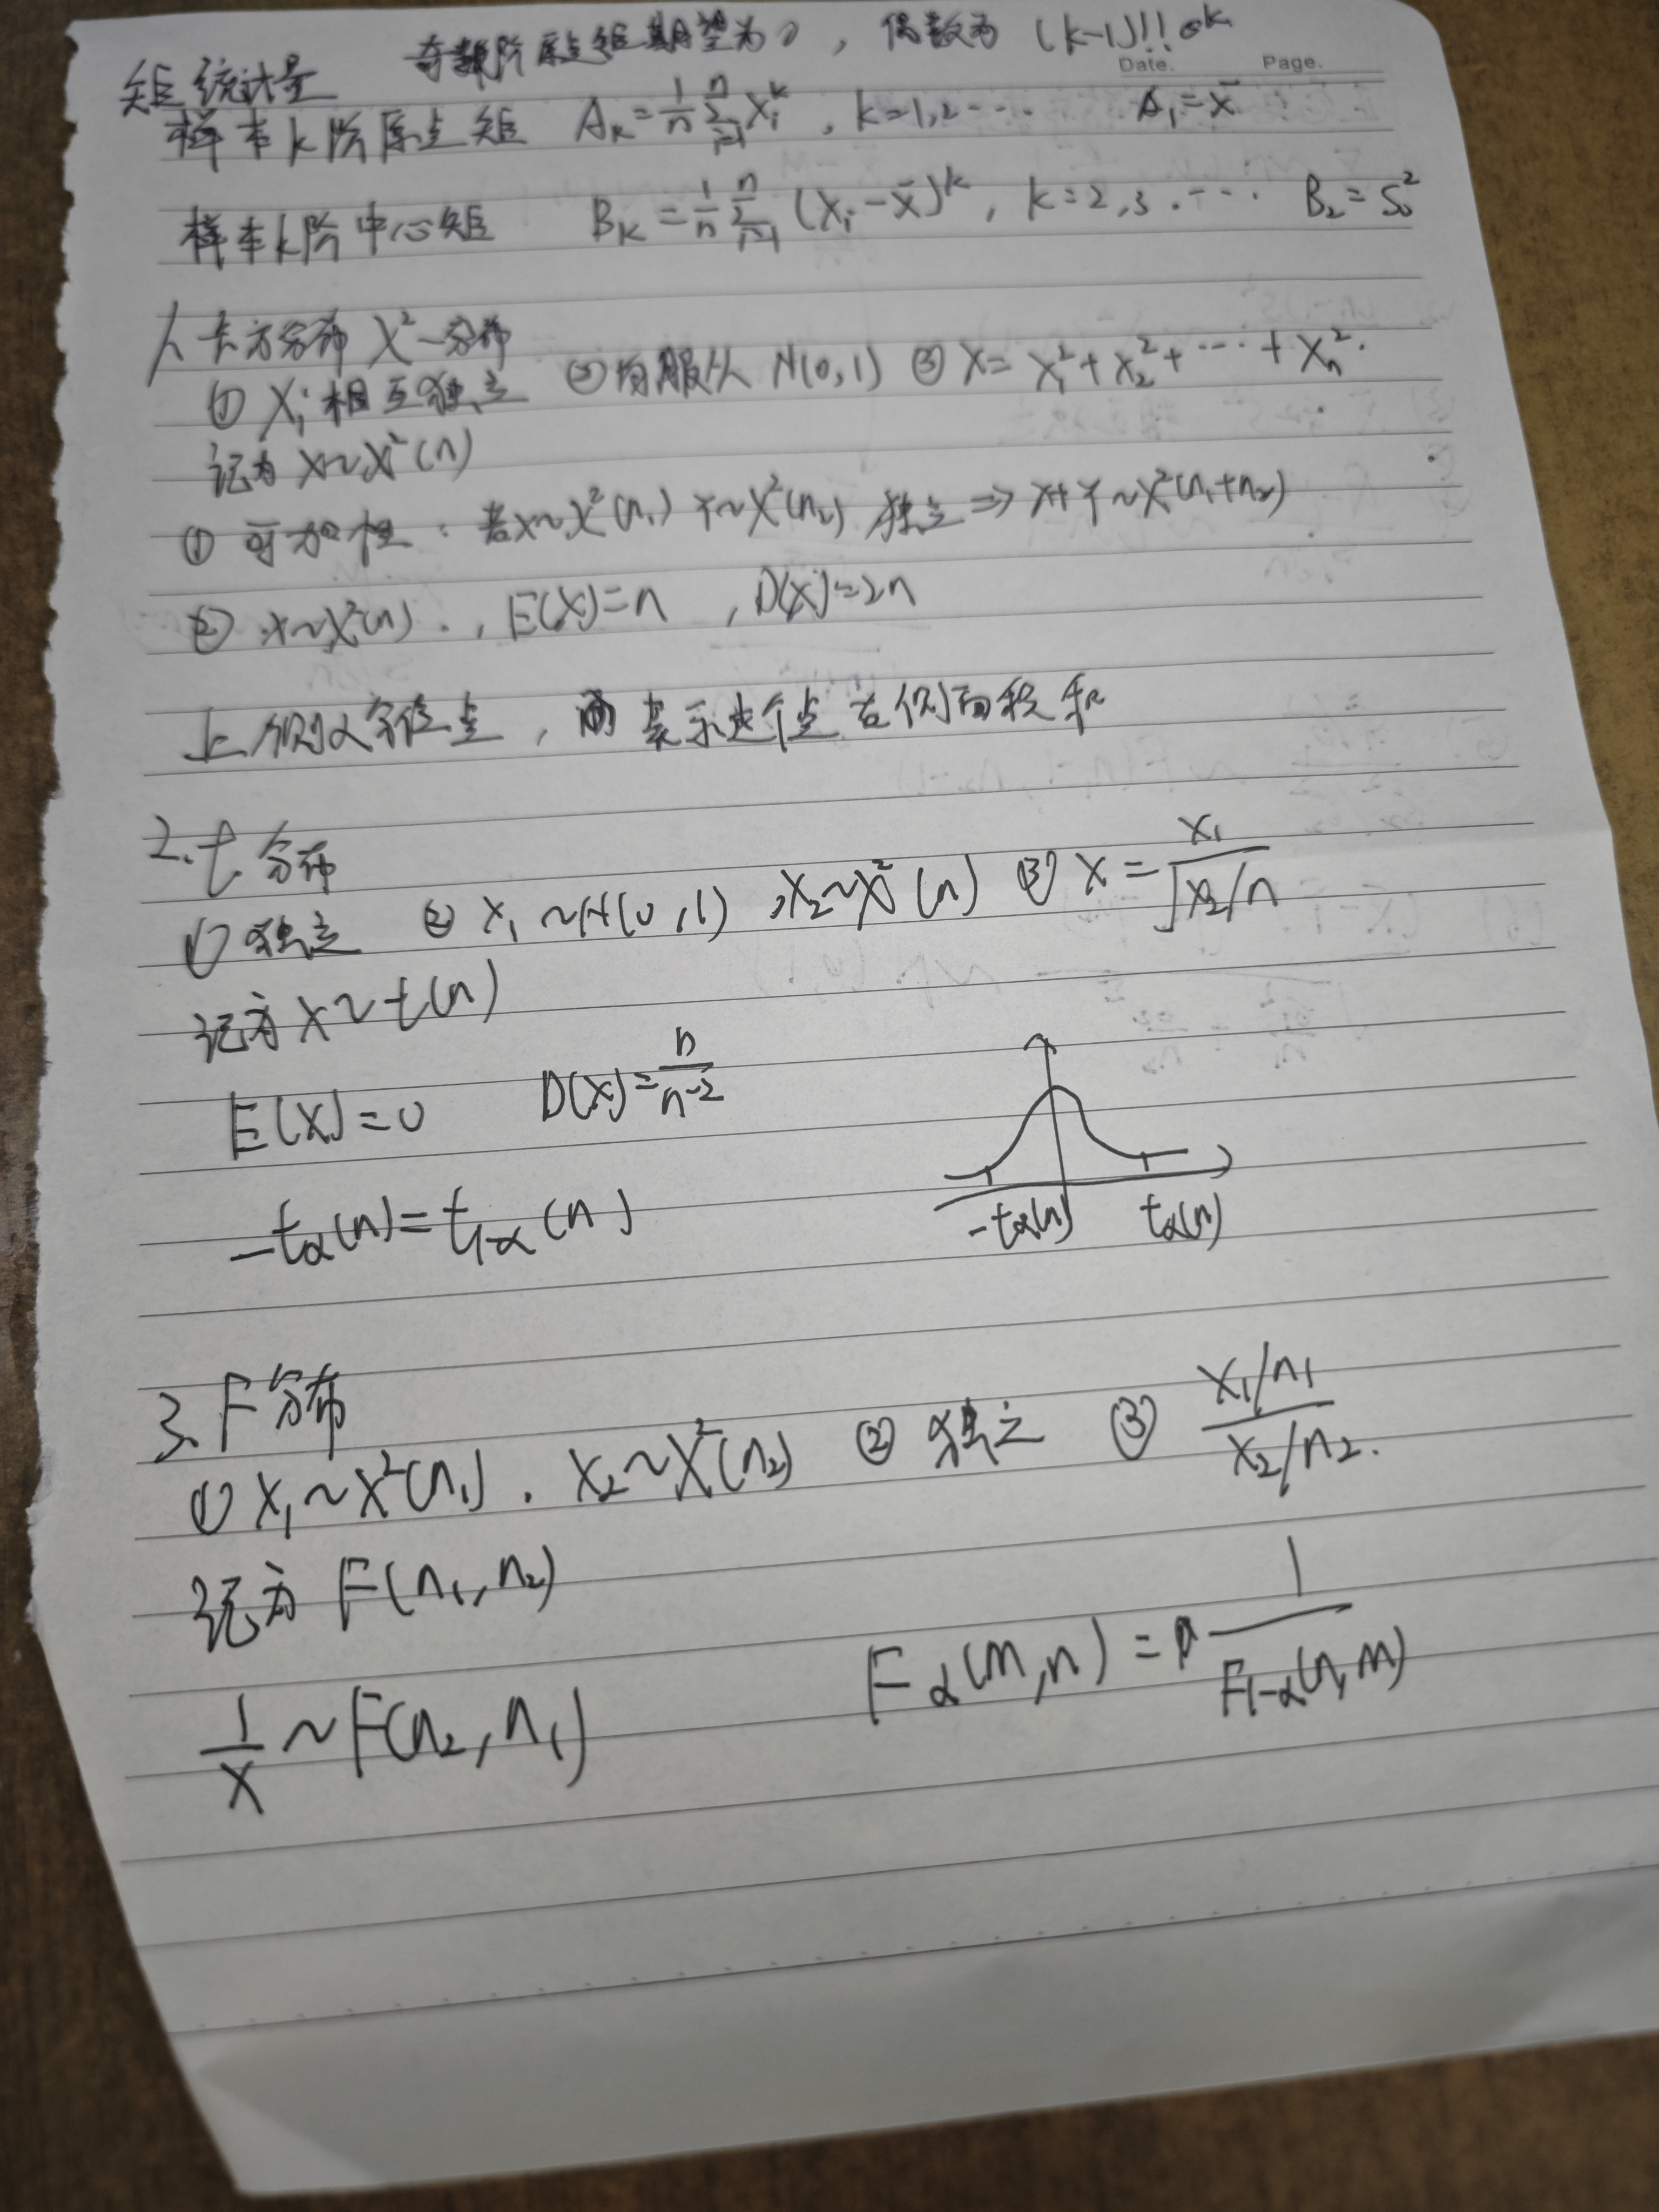 奇数阶原点矩期望为0，偶数为 (k-1)!!σᵏ
Date. Page.
矩统计量
样本k阶原点矩 Aₖ=\frac{1}{n}\sum_{i=1}^{n}Xᵢᵏ, k=1,2⋯ A₁=x̄
样本k阶中心矩 Bₖ=\frac{1}{n}\sum_{i=1}^{n}(Xᵢ-x̄)ᵏ, k=2,3.⋯ B₂=S₀²
1. 卡方分布 χ²-分布
① Xᵢ相互独立 ②均服从 N(0,1) ③ X=X₁²+X₂²+⋯+Xₙ².
记为 X~χ²(n)
① 可加性：若X~χ²(n₁) Y~χ²(n₂) 独立⇒X+Y~χ²(n₁+n₂)
② X~χ²(n)., E(X)=n , D(X)=2n
上侧α分位点，表示这个点右侧面积和
2. t分布
① 独立 ② X₁~N(0,1) ,X₂~χ²(n) ③ X=\frac{X₁}{\sqrt{X₂/n}}
记为 X~t(n)
E(X)=0 D(X)=\frac{n}{n-2}
-tα(n)=t₁₋α(n)
-tα(n) tα(n)
3. F分布
① X₁~χ²(n₁). X₂~χ²(n₂) ② 独立 ③ \frac{X₁/n₁}{X₂/n₂}.
记为 F(n₁,n₂)
\frac{1}{X}~F(n₂,n₁) Fα(m,n)=\frac{1}{F₁₋α(n,m)}